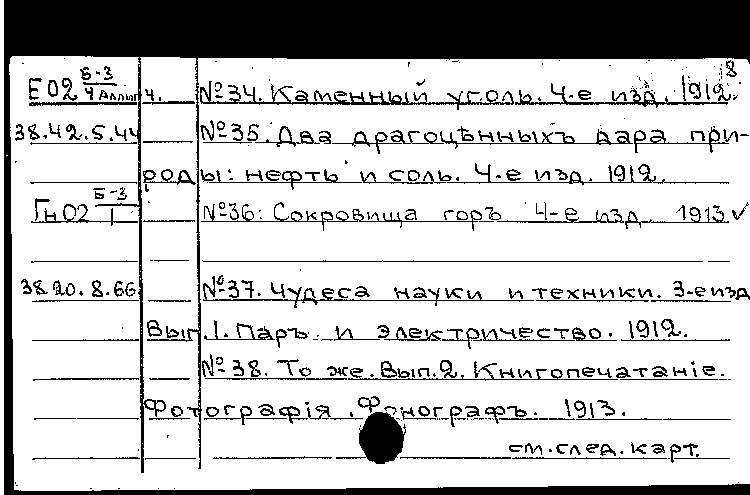 8
Е02 Б-3/4 Аллиг ч. №34. Каменный уголь. 4-е изд. 1912.
38.42.5.44 №35. Два драгоцѣнныхъ дара при-
роды: нефть и соль. 4-е изд. 1912.
Гн02 Б-3/1 №36: Сокровища горъ 4-е изд. 1913 ✓
38.20.8.66 №37. Чудеса науки и техники. 3-е изд
Вып.1. Паръ и электричество. 1912.
№38. То же. Вып.2. Книгопечатанiе.
Фотографiя. Фонографъ. 1913.
см. след. карт.